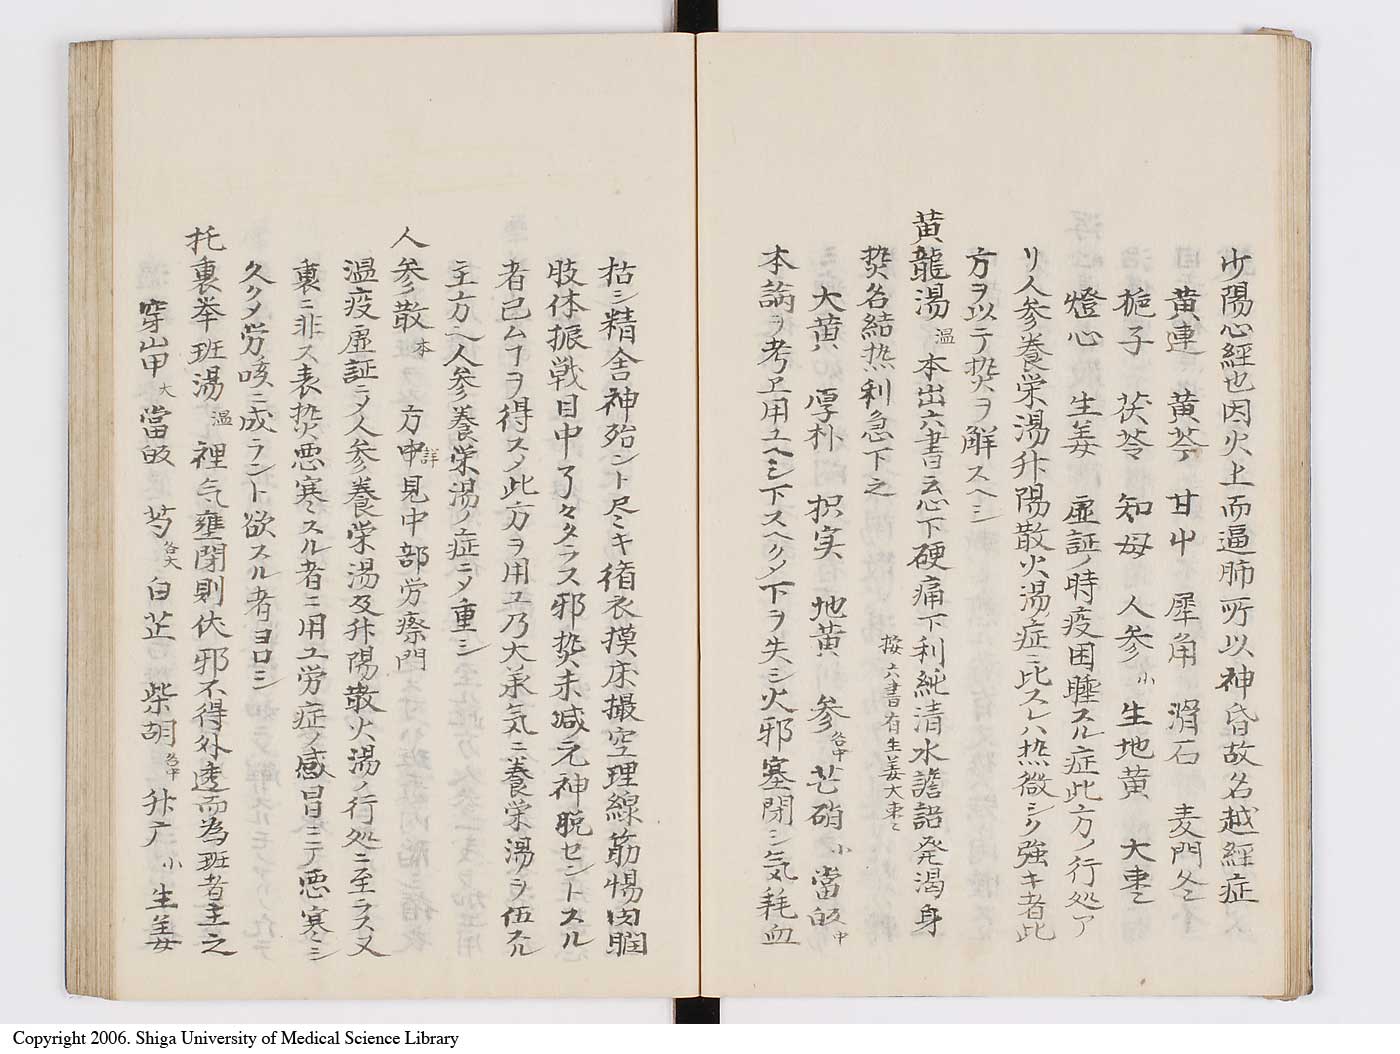 少陽心經也因火上而逼肺所以神昏故名越經症
黄連 黄芩 甘屮 犀角 滑石 麦門冬
梔子 茯苓 知母 人参小 生地黄 大棗
燈心 生姜 虚証ノ時疫困睡スル症此方ノ行処ア
リ人参養栄湯升陽散火湯ノ症ニ比スレハ热微シク強キ者此
方ヲ以テ热ヲ解スヘシ
黄龍湯温 本出六書云心下硬痛下利純清水譫語発渇身
热名結热利急下之 按六書有生姜大棗
大黄 厚朴 枳実 地黄 参各中 芒硝小 當皈中
本論ヲ考ヱ用ユヘシ下スヘクメ下ヲ失シ火邪塞閉シ気耗血
枯シ精舎神殆ント尽ミキ循衣摸床撮空理線筋惕肉瞤
肢体振戦目中了々タラス邪热未减元神脱セントスル
者已ムヿヲ得スメ此方ヲ用ユ乃大承気ニ養栄湯ヲ伍スル
主方之人参養栄湯ノ症ニメ重シ
人参散本 方詳見中部労瘵門
温疫虚証ニメ人参養栄湯及升陽散火湯ノ行処ニ至ラス又
裏ニ非ス表热悪寒スル者ニ用ユ労症ノ感冒ニテ悪寒シ
久クメ労咳ニ成ラント欲スル者ヨロシ
托裏挙班湯温 裡气壅閉則伏邪不得外透而為班者主之
穿山甲大 當皈 芍各大 白芷 柴胡各中 升广小 生姜
Copyright 2006. Shiga University of Medical Science Library